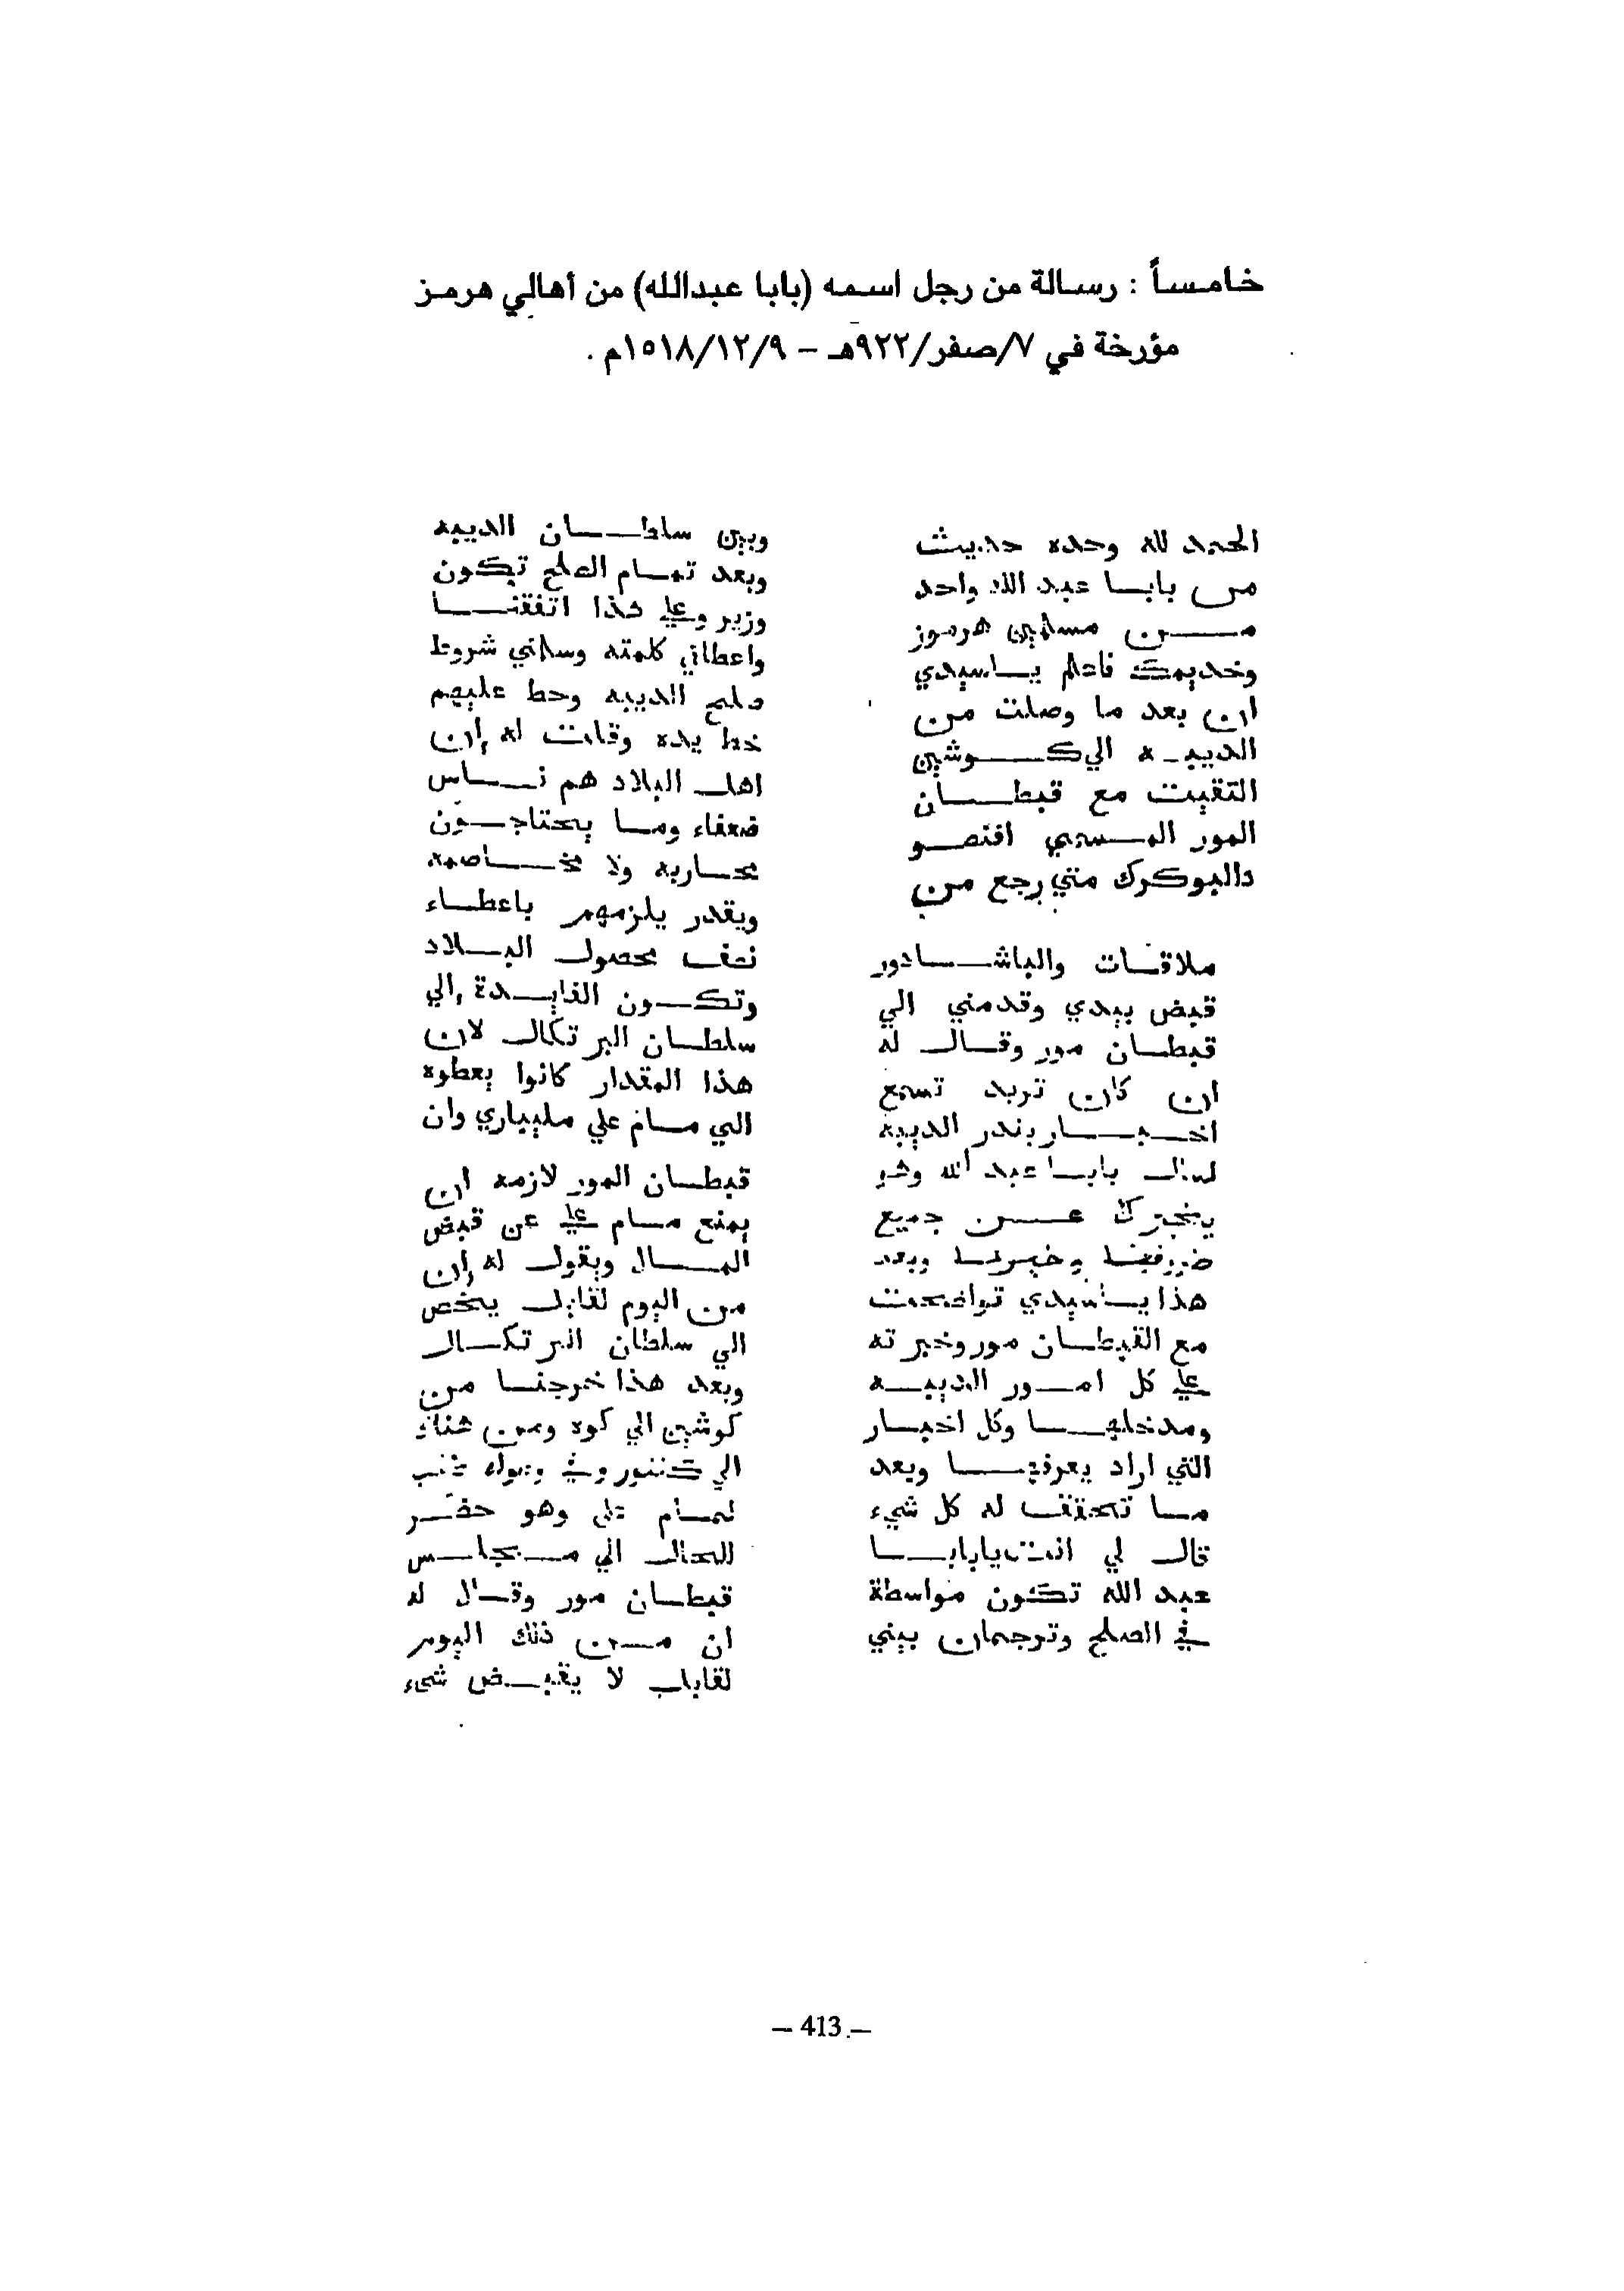 خامساً : رسالة من رجل اسمه (بابا عبدالله) من أهالي هرمز
مؤرخة في ٧/صفر/٩٢٢هـ – ١٥١٨/١٢/٩م .
الحمد لله وحده حديث
من بابا عبد الله واحد
من مسلمين هرموز
وخديمك فاعلم يا سيدي
ان بعد ما وصلت من
الديبه الي كوشين
التقيت مع قبطان
المور المسمي افنصو
دالبوكرك متي رجع من
ملاقات والباشادور
قبض بيدي وقدمني الي
قبطان مور وقال له
ان كان تريد تسمع
اخبار بندر الديبة
لسال بابا عبد الله وهو
يخبرك عن جميع
وخبرنا وبعد
هذا يا سيدي تواضحت
مع القبطان مور وخبرته
علي كل امور الديبه
ومدخلها وكل اخبار
التي اراد يعرفها وبعد
ما تحققت له كل شيء
قال لي انت يا بابا
عبد الله تكون مواسطة
في الصلح وترجمان بيني
وبين سلطان الديبه
وبعد تمام الصلح تكون
وزير وعلي هذا اتفقنا
واعطاني كلمته وسلمني شروط
صلح الديبه وحط عليهم
خط يده وقلت له ان
اهل البلاد هم ناس
ضعفاء وما يحتاجون
محاربه ولا مخاصمه
ويقدر يلزمهم باعطاء
نصف محصول البلاد
وتكون الفايدة الي
سلطان البرتكال لان
هذا المقدار كانوا يعطوه
الي مام علي مليباري وان
قبطان المور لازمه ان
يمنع مام علي عن قبض
المال ويقول له ان
من اليوم لقابل يخص
الي سلطان البرتكال
وبعد هذا خرجنا من
كوشين الي كوه ومن هناك
الي كننور وفي وصوله كتب
لمام علي وهو حضر
للحال الي مجلس
قبطان مور وقال له
ان من ذلك اليوم
لقابل لا يقبض شيء
– 413 –